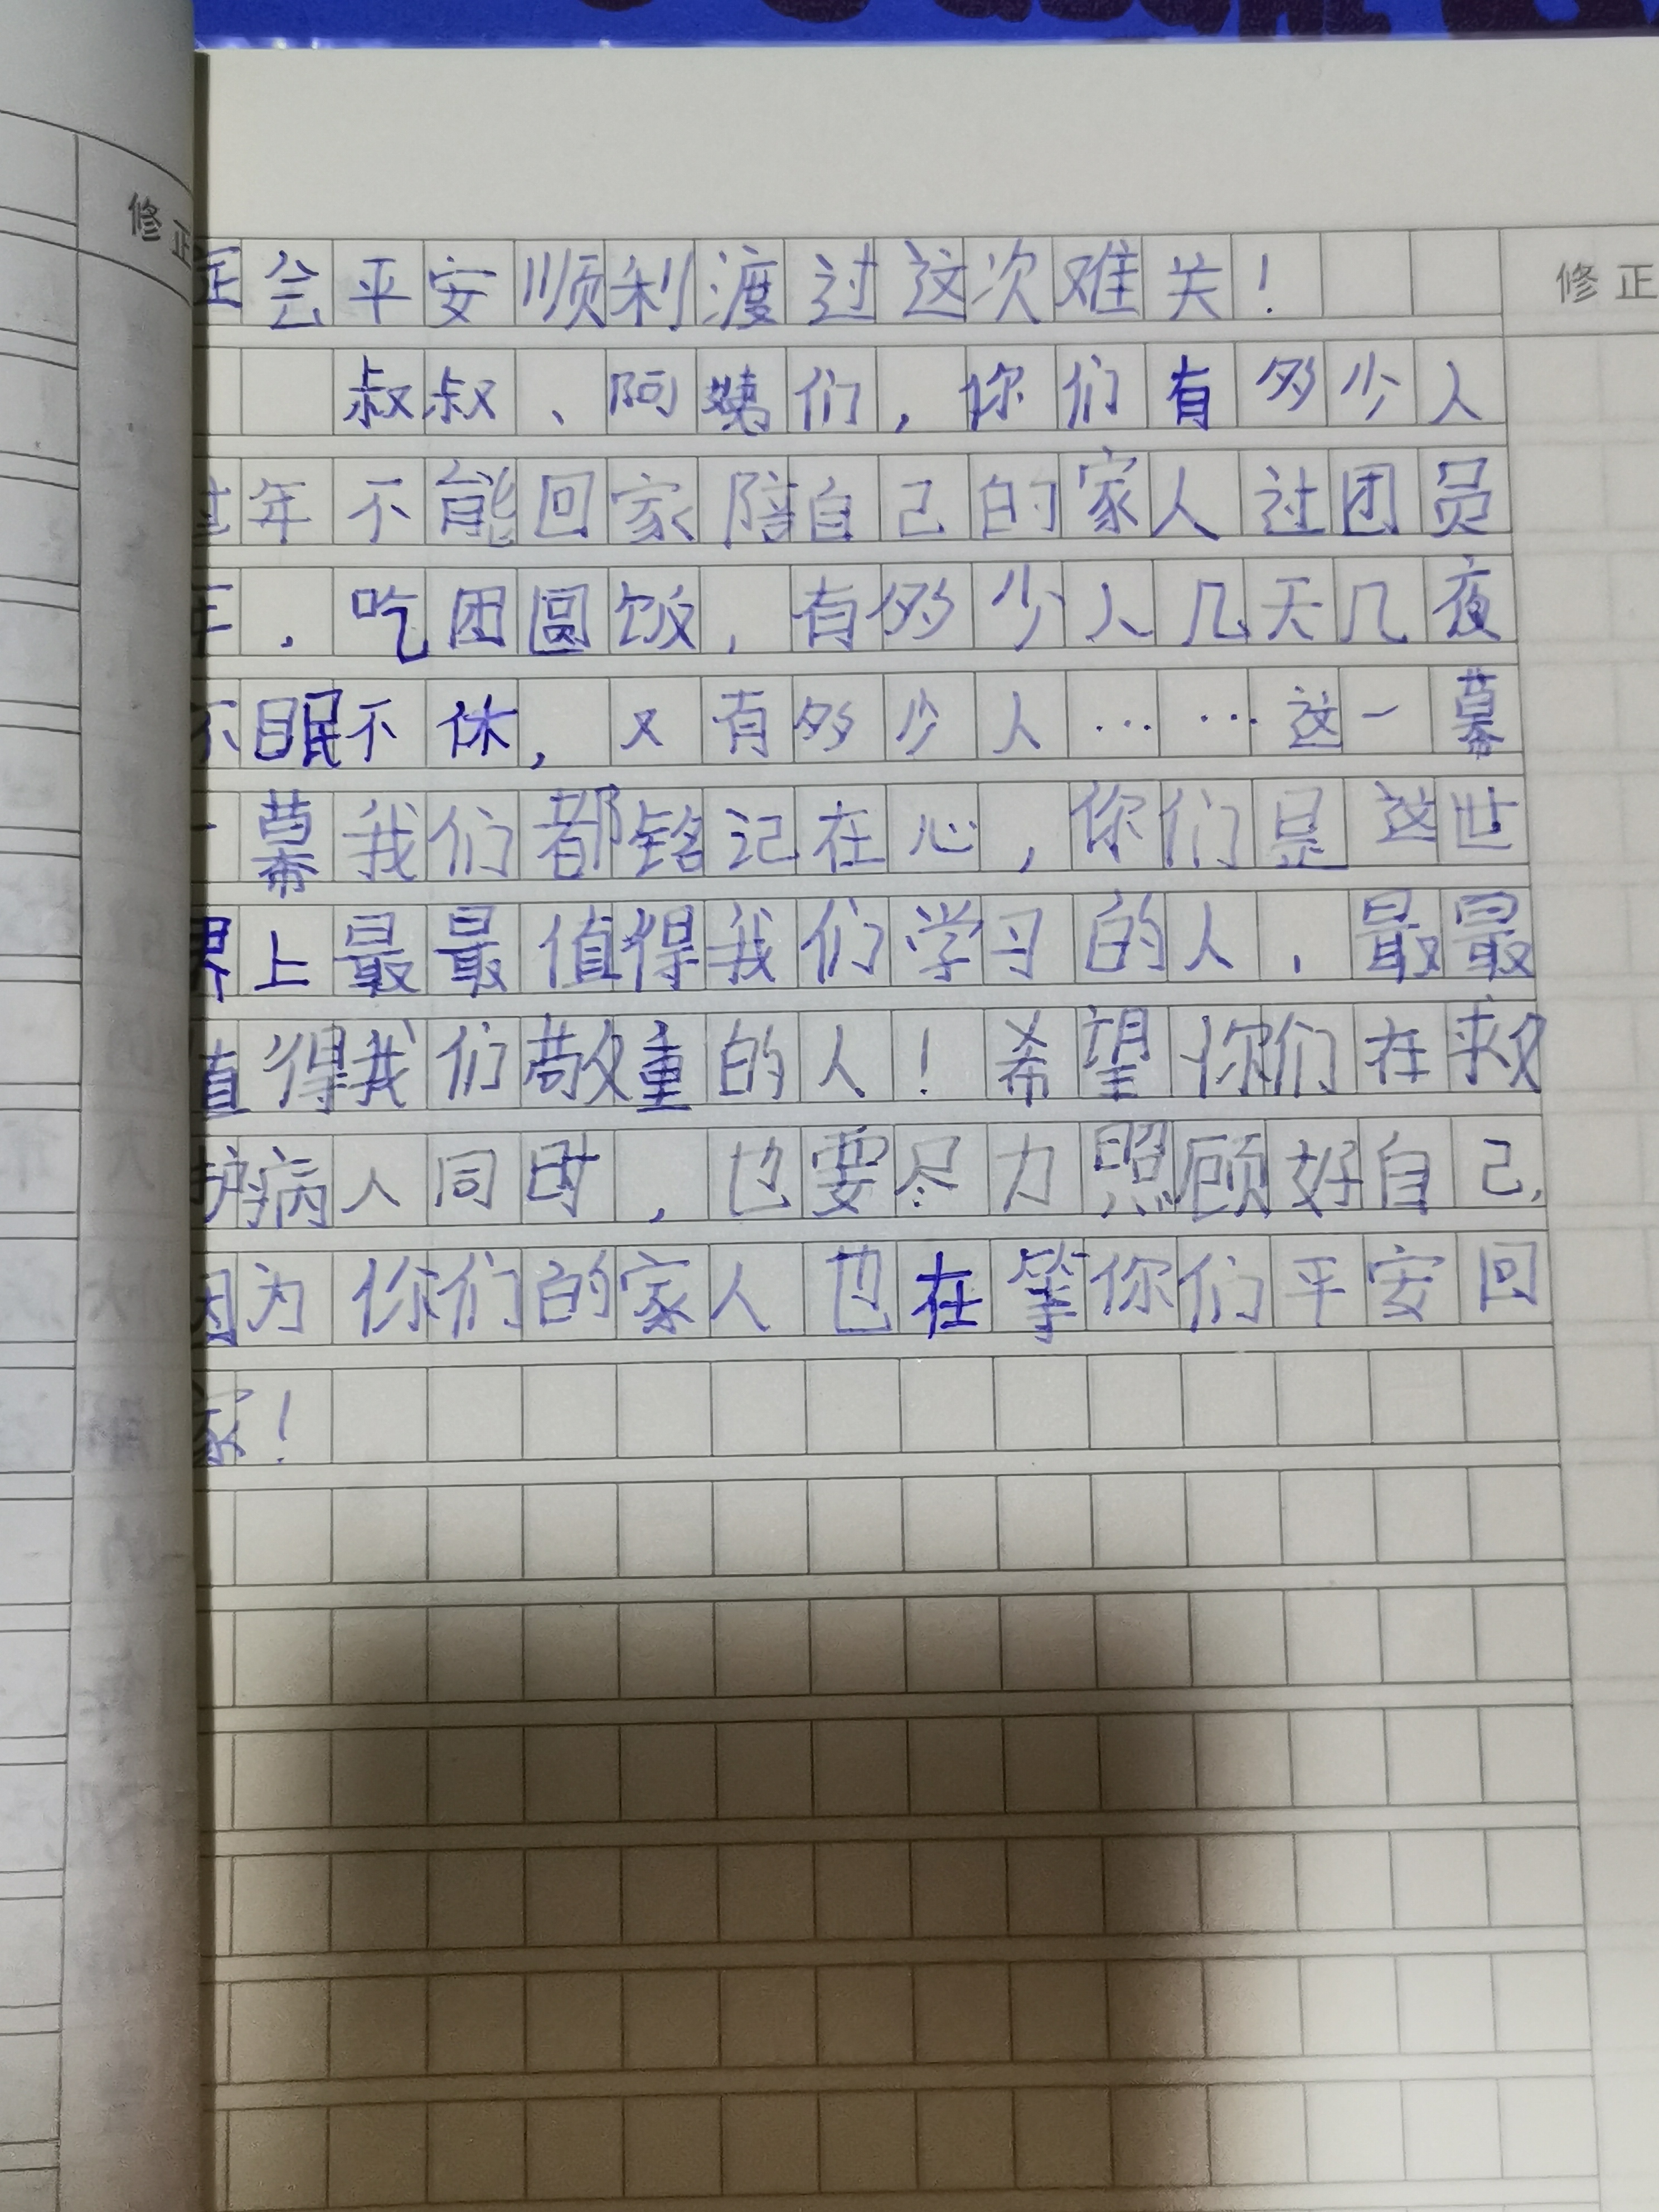 修正
定会平安顺利渡过这次难关！
修正
叔叔、阿姨们，你们有多少人
过年不能回家陪自己的家人过团员
年，吃团圆饭，有多少人几天几夜
不眠不休，又有多少人……这一幕
一幕我们都铭记在心，你们是这世
界上最最值得我们学习的人，最最
值得我们敬重的人！希望你们在救
护病人同时，也要尽力照顾好自己，
因为你们的家人也在等你们平安回
家！